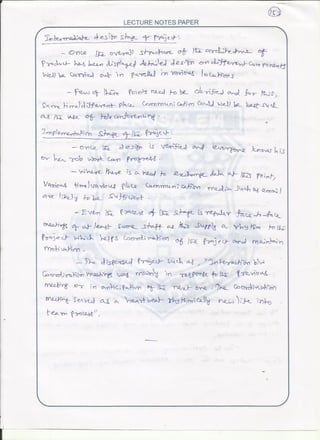 LECTURE NOTES PAPER
Intermediate design stage of Project:
- Once the overall structure of the architecture of
Product has been displayed detailed design on different components
Well be carried out in parallel in various locations
- Few of them Points need to be clarified and for this,
Same time/different place Communication Could well be best suit
as the use of teleconferencing
Implementation Stage of the Project:
- Once the design is verified and everyone knows his
or her job work can progress.
- Where there is a need to exchange data at this point,
Various time/various place Communication media such as email
are likely to be sufficient
- Even the Process of this stage is regular face-to-face
meetings of at least some staff as this supply a rhythm to the
Project which helps coordination of the Project and maintain
motivation.
- The dispersed Project such as, "Interaction b/w
Coordination meetings was mostly in response to the Previous
meeting or in anticipation of the next one. The Coordination
meeting served as a heartbeat rhythmically new life into
team process".